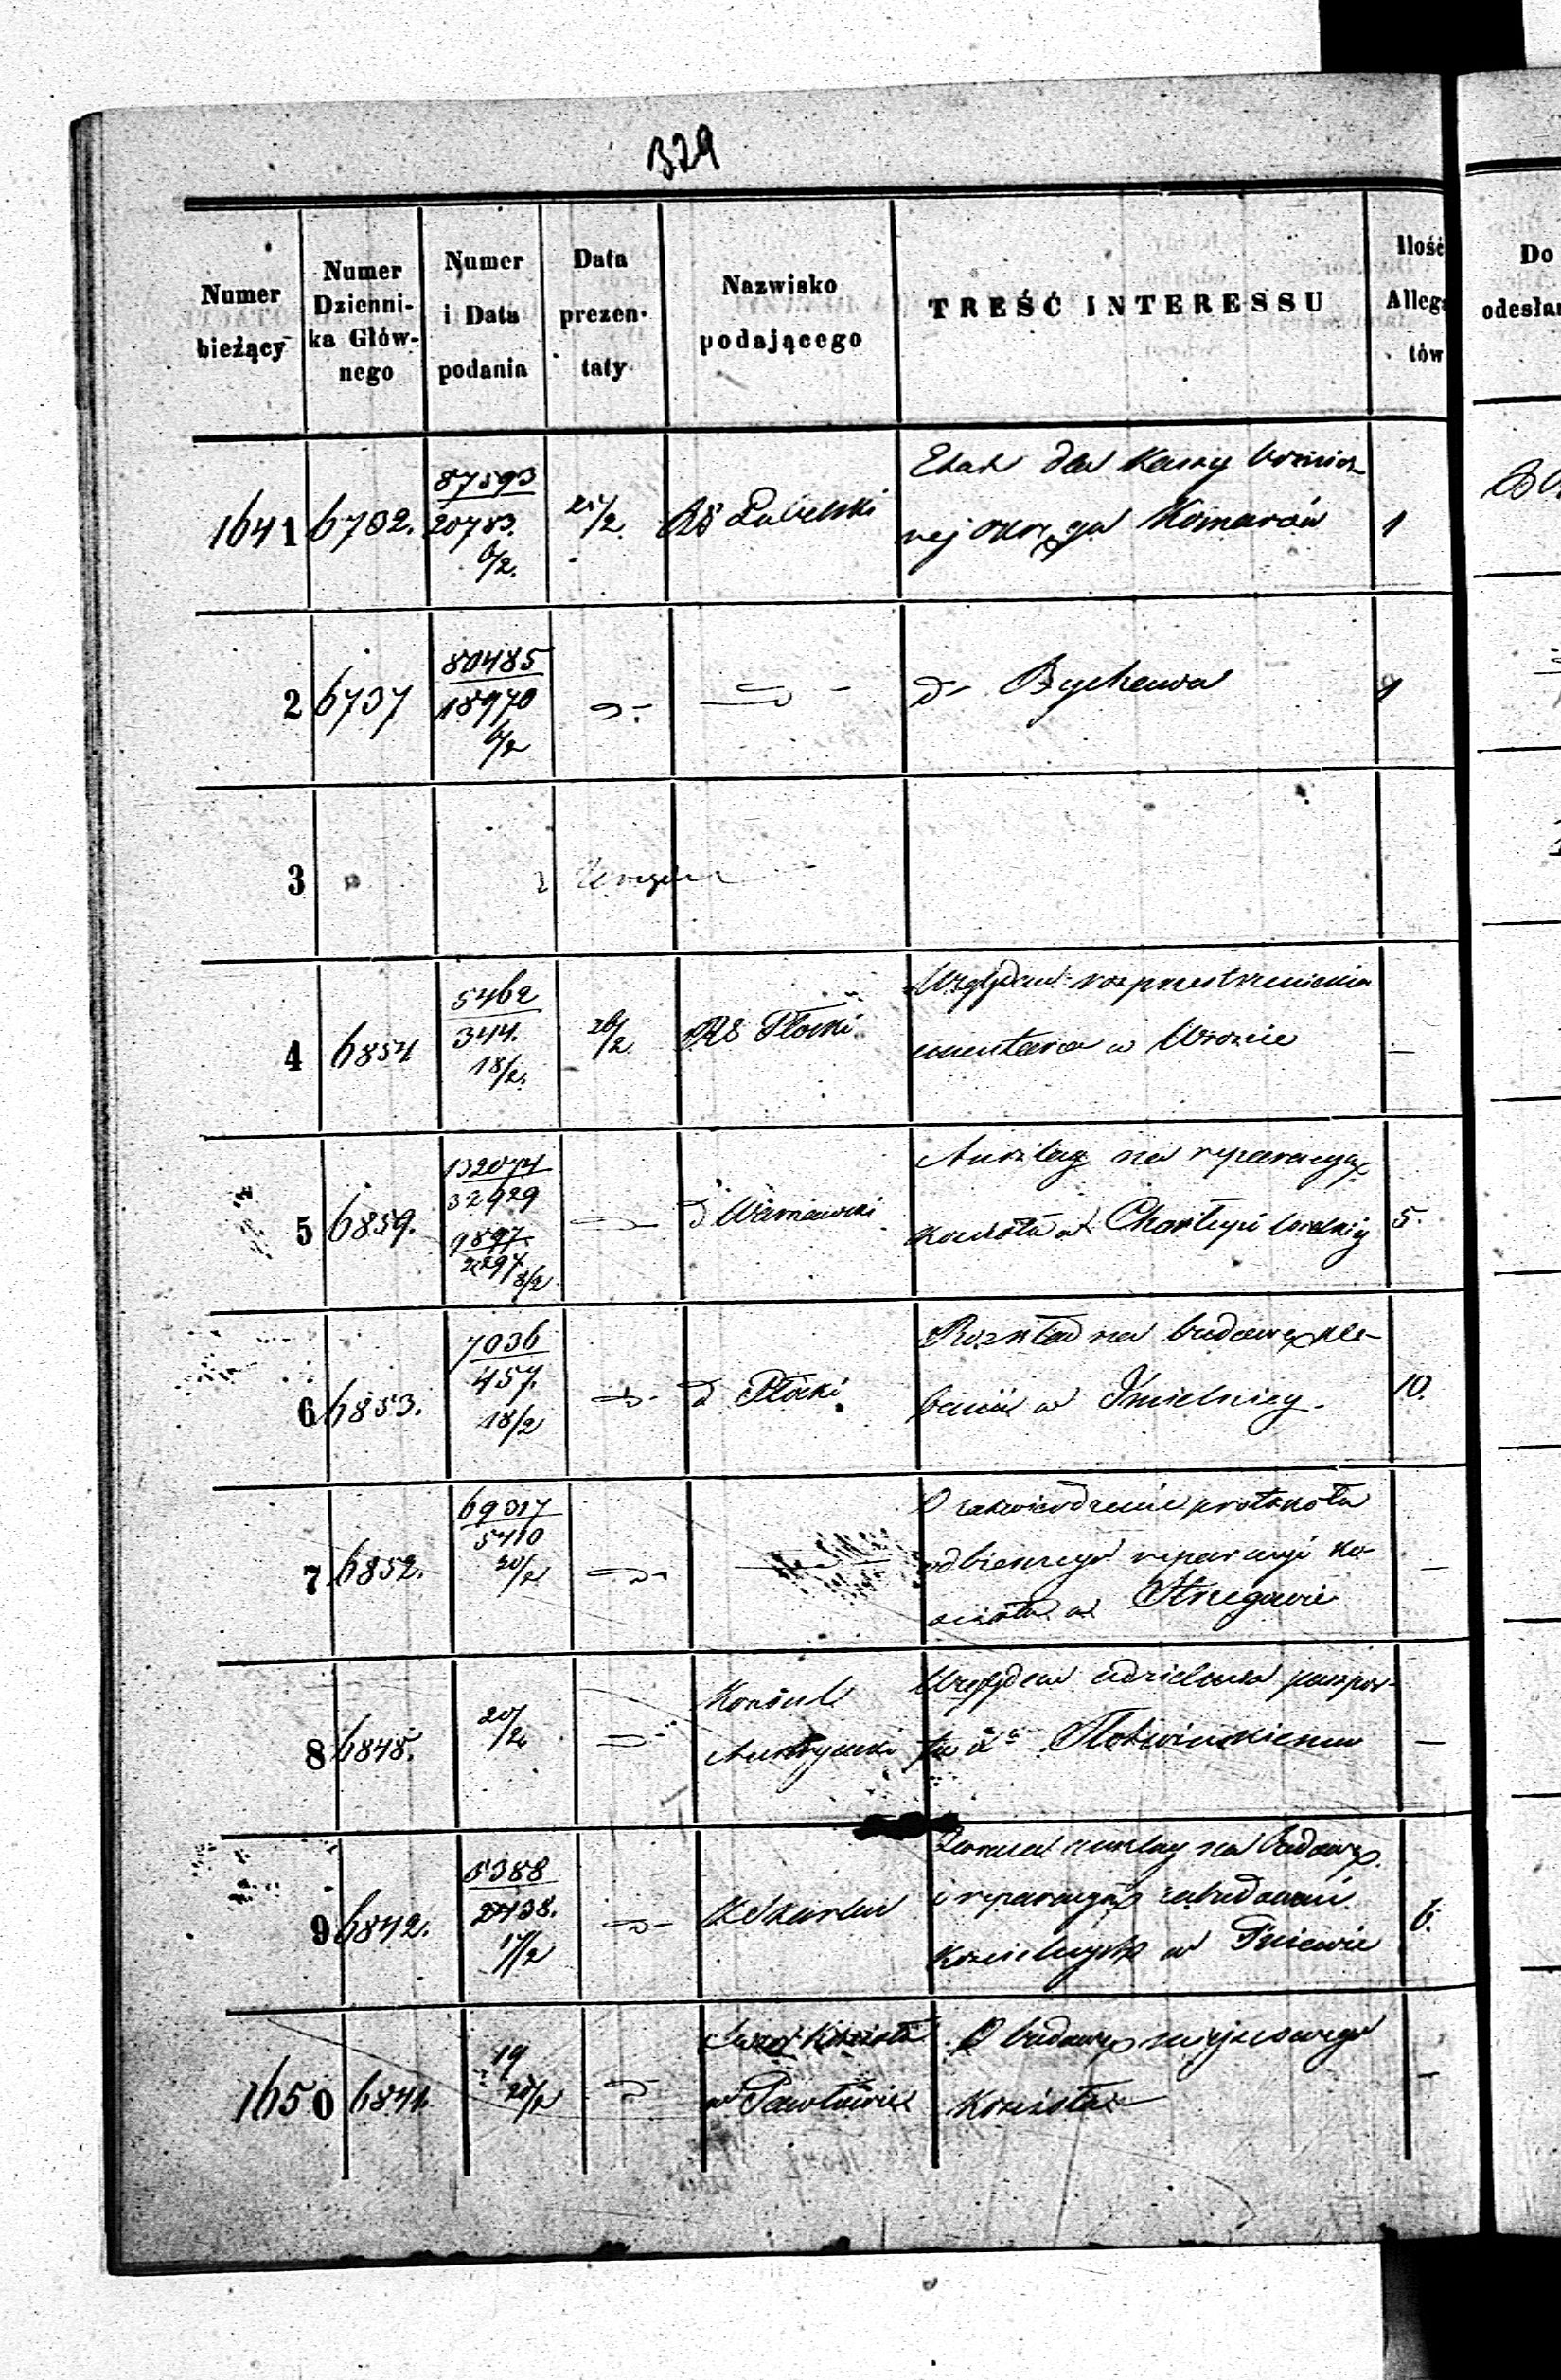 329
Numer bieżący
Numer Dzienni- ka Głów- nego
Numer i Data podania
Data prezen- taty
Nazwisko podającego
TREŚĆ INTERESSU
Ilość Allega tów
Do odesłan
1641 6732. 87593 20783. 6/2. 25/2. RG Lubelski
Etat dla Kassy bożnicz
nej okręgu Komarów 1
2 6737 80485 18970 6/2
Do Bychawa 1
3
4 6854 5462 344. 18/2. 26/2. RG Płocki
Względem rozprzestrzenienia
cmentarza w Wronie —
5 6859. 132074 32929 9897 2297 8/2 d Warszawski
Anszlag na reparacyą
kościoła w Charłupi wielkiy 5.
6 6853. 7036 457. 18/2 d Płocki
Rozkład na budowę ple-
banii w Imielnicy. 10.
7 6852. 69317 5410 20/2
O zatwierdzenie protokołu
odbiorczego reparacyi ko-
ścioła w Strzegowie —
8 6848. 20/2 Konsul Austryacki
Względem udzielenia paszpor-
tu Xu Słotwińskiemu —
9 6842. 5388 2438. 17/2
anszlag na budowę
i reparacyą zabudowań
kościelnych w Pniewie 6.
1650 6841. 19 20/2 Dozór Kościoła w Pawłowie
O budowę miejscowego
Kościoła —